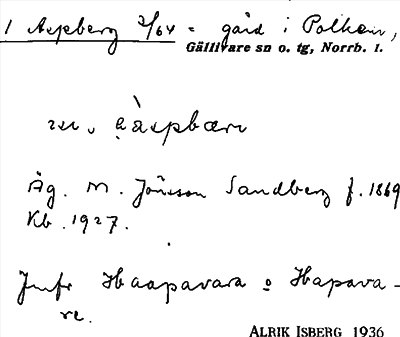 1 Aspberg 2/64 = gård i Polken,
Gällivare sn o. tg, Norrb. l.
Äg. M. Jönsson Sandberg f. 1869
Kb. 1927.
Jmfr Haapavara o Hapava-
re.
ALRIK ISBERG 1936